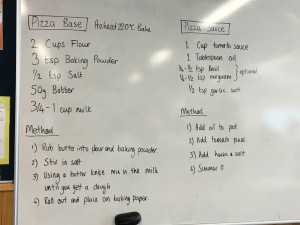 Pizza Base
2 Cups Flour
3 tsp Baking Powder
1/2 tsp Salt
50g Butter
3/4 - 1 cup milk
Method
1) Rub butter into flour and baking powder
2) Stir in salt
3) Using a butter knife mix in the milk
until you get a dough
4) Roll out and place on baking paper.
Pizza Sauce
1 Cup tomato sauce
1 Tablespoon oil
1/4-1/2 tsp Basil
1/4-1/2 tsp marjoram } optional
1/2 tsp garlic salt
Method
1) Add oil to pot
2) Add tomato
3) Add herbs + salt
4) Simmer it